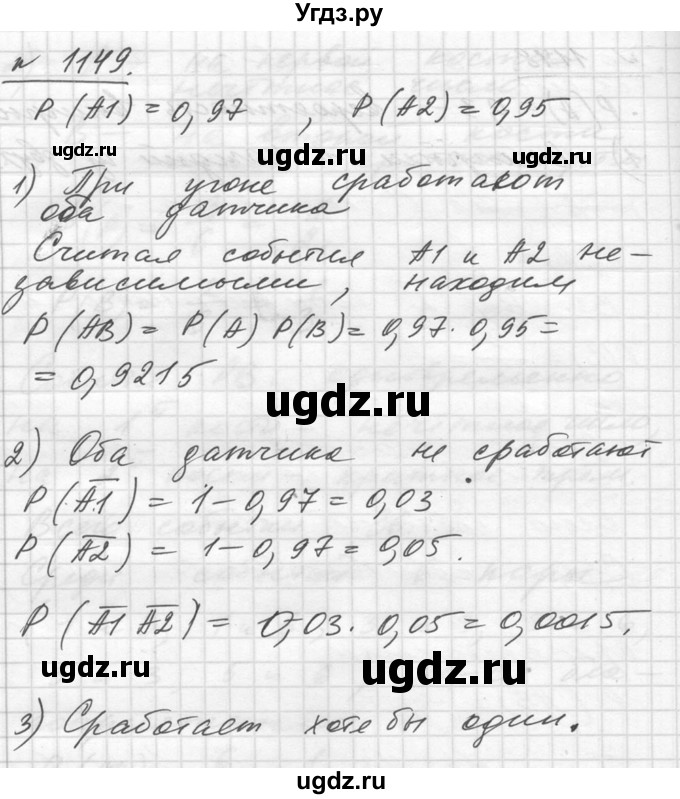 Угдз.ру
n 1149.
P(A1) = 0,97 , P(A2) = 0,95
ugdz.ru ugdz.ru
1) При угоне сработают
оба датчика
Считая события A1 и A2 не-
зависимыми, находим
P(AB) = P(A) P(B) = 0,97 · 0,95 =
= 0,9215
ugdz.ru
2) Оба датчика не сработают
P(A̅1̅) = 1 - 0,97 = 0,03
P(A̅2̅) = 1 - 0,97 = 0,05.
P(A̅1̅ A̅2̅) = 0,03 · 0,05 = 0,0015.
ugdz.ru ugdz.ru
3) Сработает хотя бы один.
ugdz.ru